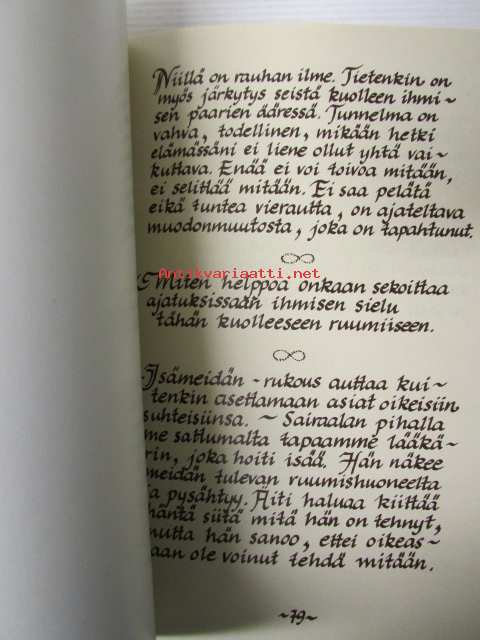 Niillä on rauhan ilme. Tietenkin on
myös järkytys seistä kuolleen ihmi-
sen paarien ääressä. Tunnelma on
vahva, todellinen, mikään hetki
elämässäni ei liene ollut yhtä vai-
kuttava. Enää ei voi toivoa mitään,
ei selittää mitään. Ei saa pelätä
eikä tuntea vierautta, on ajateltava
muodonmuutosta, joka on tapahtunut.
Antikvariaatti.net
Miten helppoa onkaan sekoittaa
ajatuksissaan ihmisen sielu
tähän kuolleeseen ruumiiseen.
Isämeidän - rukous auttaa kui-
tenkin asettamaan asiat oikeisiin
suhteisiinsa. ~ Sairaalan pihalla
me sattumalta tapaamme lääkä-
rin, joka hoiti isää. Hän näkee
meidän tulevan ruumishuoneelta
ja pysähtyy. Äiti haluaa kiittää
häntä siitä mitä hän on tehnyt,
mutta hän sanoo, ettei oikeas-
taan ole voinut tehdä mitään.
~79~